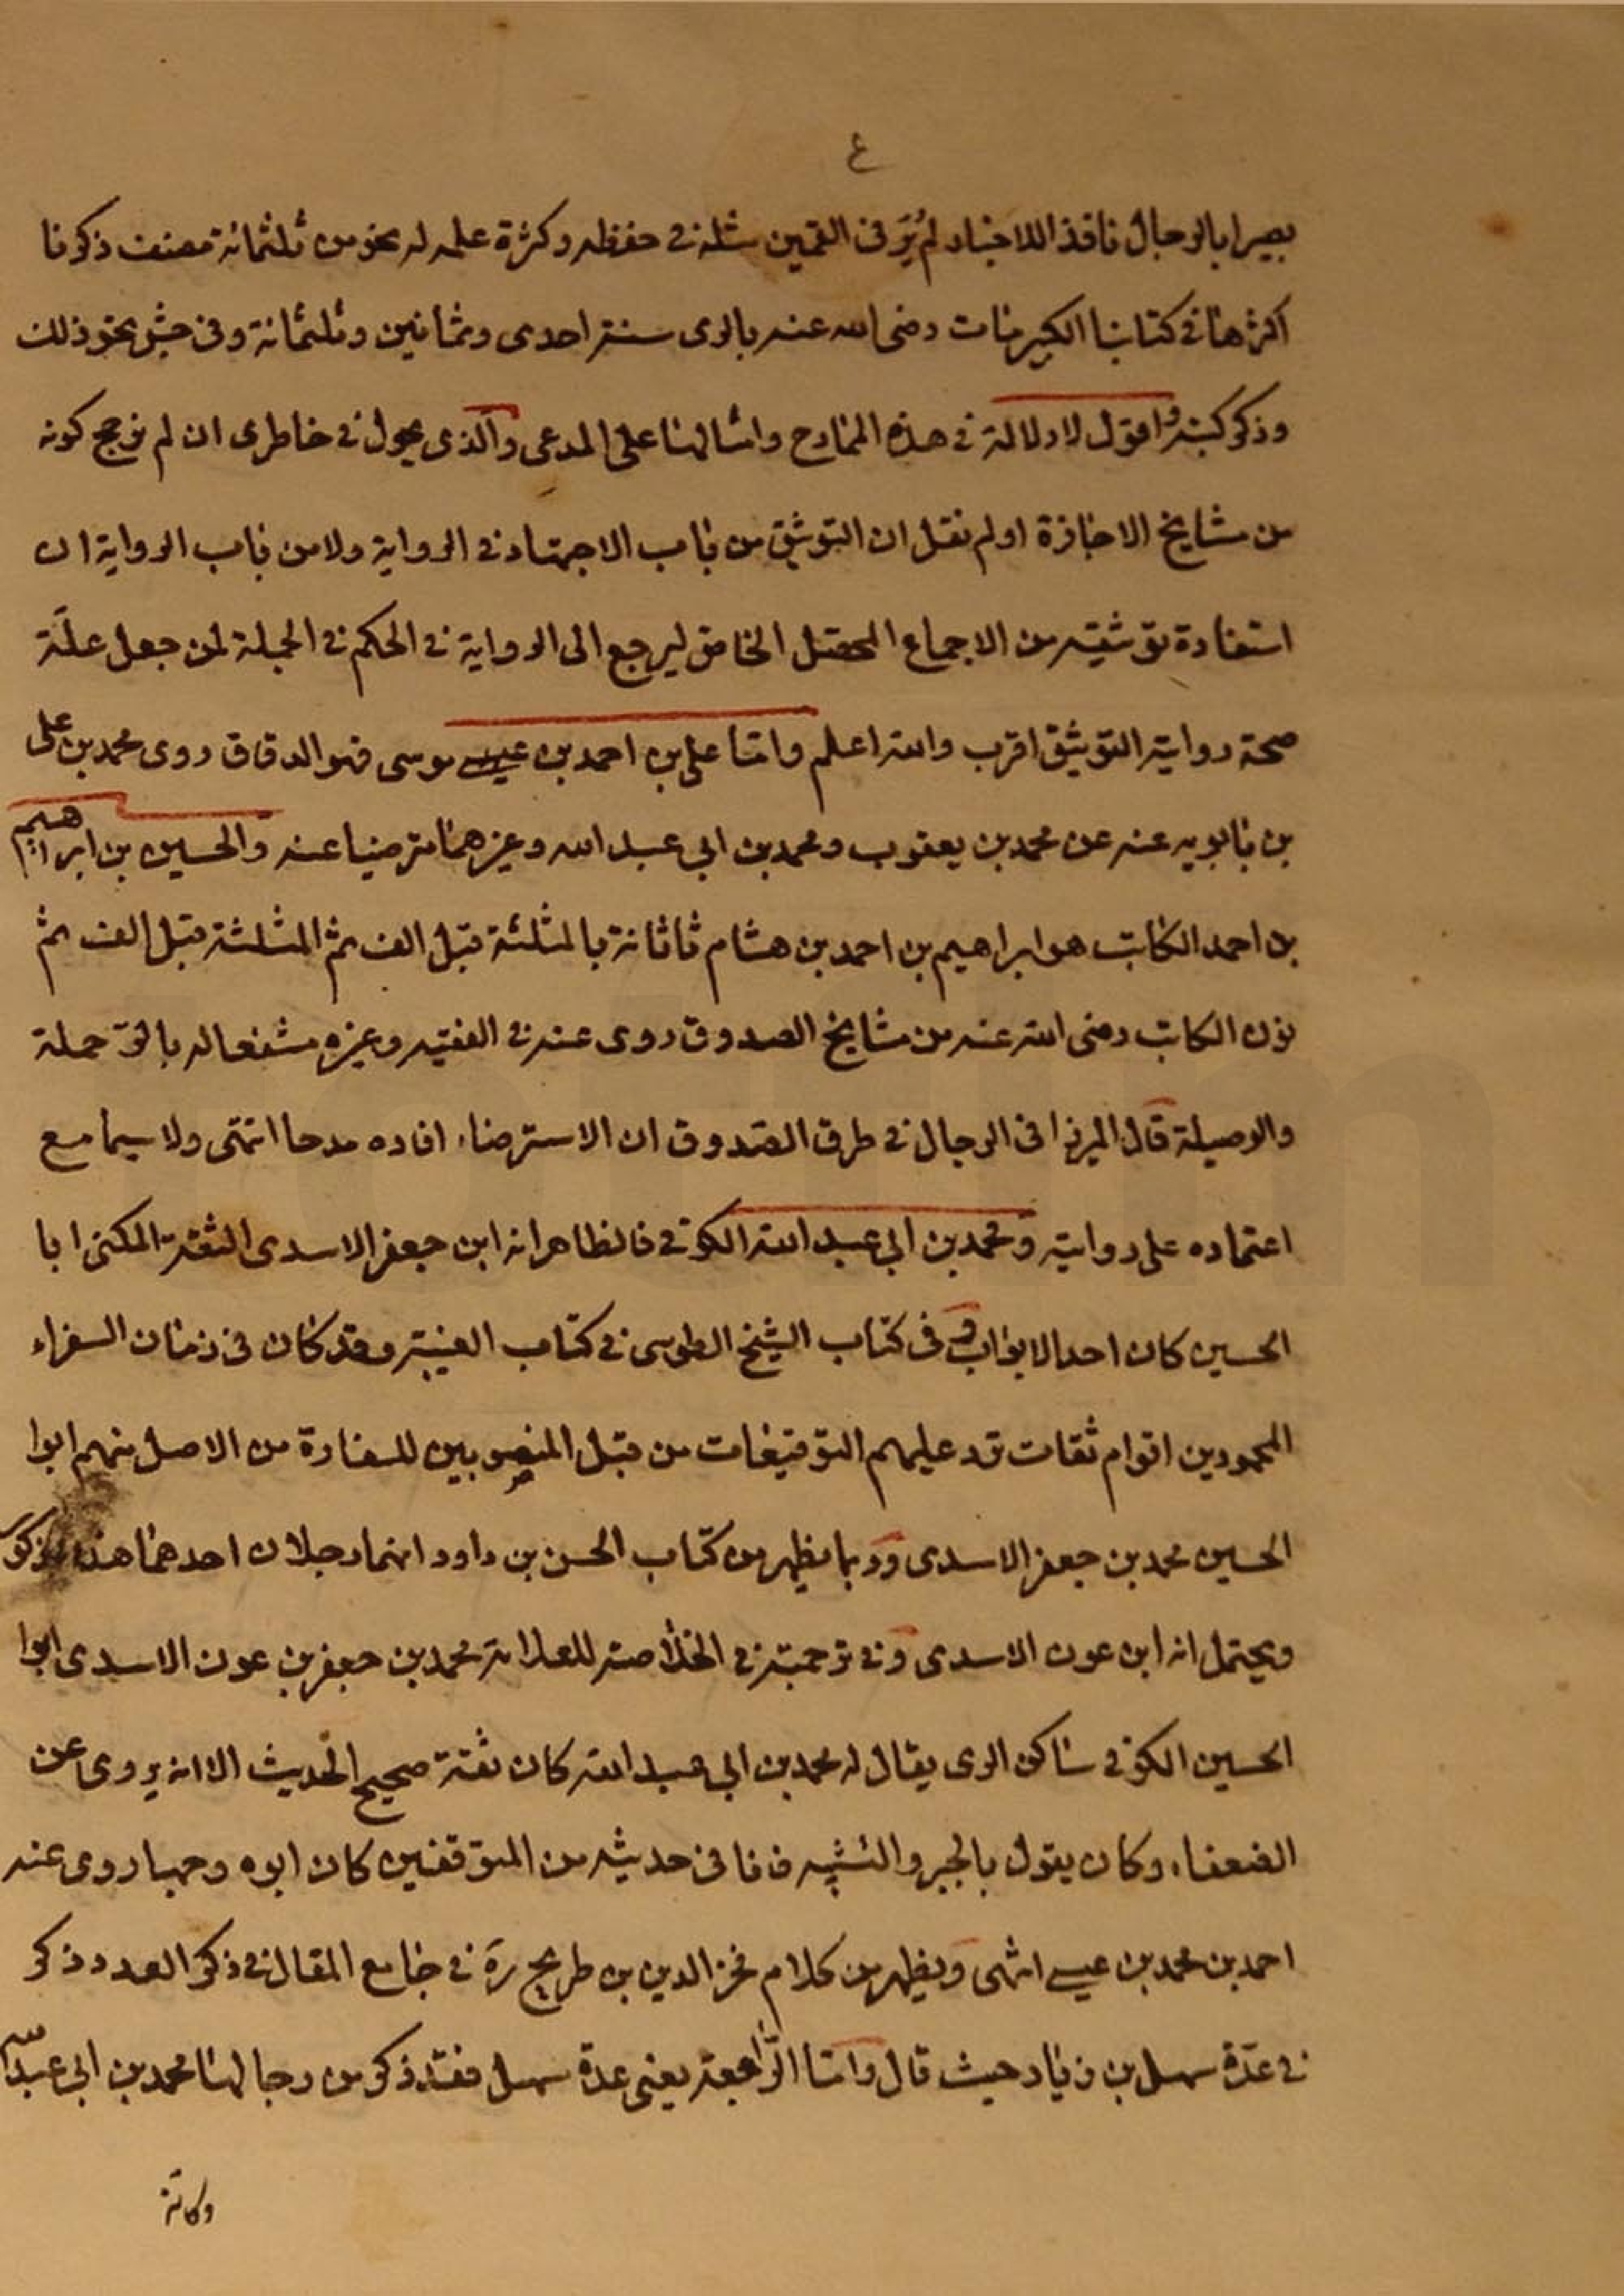 ٤
بصيرا بالرجال ناقدا للاخبار لم يُرَ فى القميين مثله فى حفظه وكثرة علمه له نحو من ثلثمائة مصنف ذكرنا
اكثرها فى كتابنا الكبير مات رضى الله عنه بالرى سنة احدى وثمانين وثلثمائة وفى جش نحو ذلك
وذكر كتبه واقول لا دلالة فى هذه المنادح وامثالهنا على المدعى والذى يجول فى خاطرى ان لم نرجح كونه
من مشايخ الاجازة او لم نقل ان التوثيق من باب الاجتهاد فى الرواية ولا من باب الرواية ان
استفادة توثيقه من الاجماع المحصّل الخاص ليرجع الى الرواية فى الحكم فى الجملة لمن جعل علّة
صحة رواية التوثيق اقرب والله اعلم وامّا على بن احمد بن عيسى موسى فهو الدقاق روى محمد بن على
بن بابويه عنه عن محمد بن يعقوب ومحمد بن ابى عبد الله وغيرهما مترضيا عنه والحسين بن ابراهيم
بن احمد الكاتب هو ابراهيم بن احمد بن هشام ثاثانة بالمثلثة قبل الف ثم المثلثة قبل الف ثم
نون الكاتب رضى الله عنه من مشايخ الصدوق روى عنه فى الفقيه وغيره مشفعا له بالرّحملة
والوصيلة قال الميرزا فى الرجال فى طرق الصّدوق ان الاسترضاء افاده مدحا انتهى ولا سيما مع
اعتماده على روايته ومحمد بن ابى عبد الله الكوفى فالظاهر انه ابن جعفر الاسدى الثقة المكنى ابا
الحسين كان احد الابواب وفى كتاب الشيخ الطوسى فى كتاب الغيبة وقد كان فى زمان السفراء
المحمودين اقوام ثقات ترد عليهم التوقيعات من قبل المنصوبين للسفارة من الاصل منهم ابوا
الحسين محمد بن جعفر الاسدى وربما يظهر من كتاب الحسن بن داود انهما رجلان احدهما هذا المذكور
ويحتمل انه ابن عون الاسدى وفى ترجمته فى الخلاصة للعلامة محمد بن جعفر بن عون الاسدى ابوا
الحسين الكوفى ساكن الرى يقال له محمد بن ابى عبد الله كان ثقة صحيح الحديث الا انه يروى عن
الضعفاء وكان يقول بالجبر والتشبيه فانا فى حديثه من المتوقفين كان ابوه وجها روى عنه
احمد بن محمد بن عيسى انتهى ويظهر من كلام فخر الدين بن طريح ره فى جامع المقال فى ذكر العدد وذكر
فى عدّة سهل بن زياد حيث قال وامّا الرّابعة يعنى عدة سهل فقد ذكر من رجالهنا محمد بن ابى عبد الله
وكانه